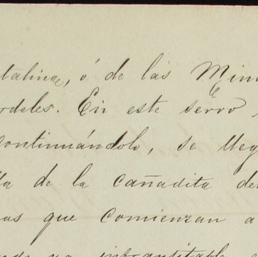 talina, ó de las Min
ordeles. En este serro
continuándolo, se lleg
la de la cañadita de
as que comienzan a